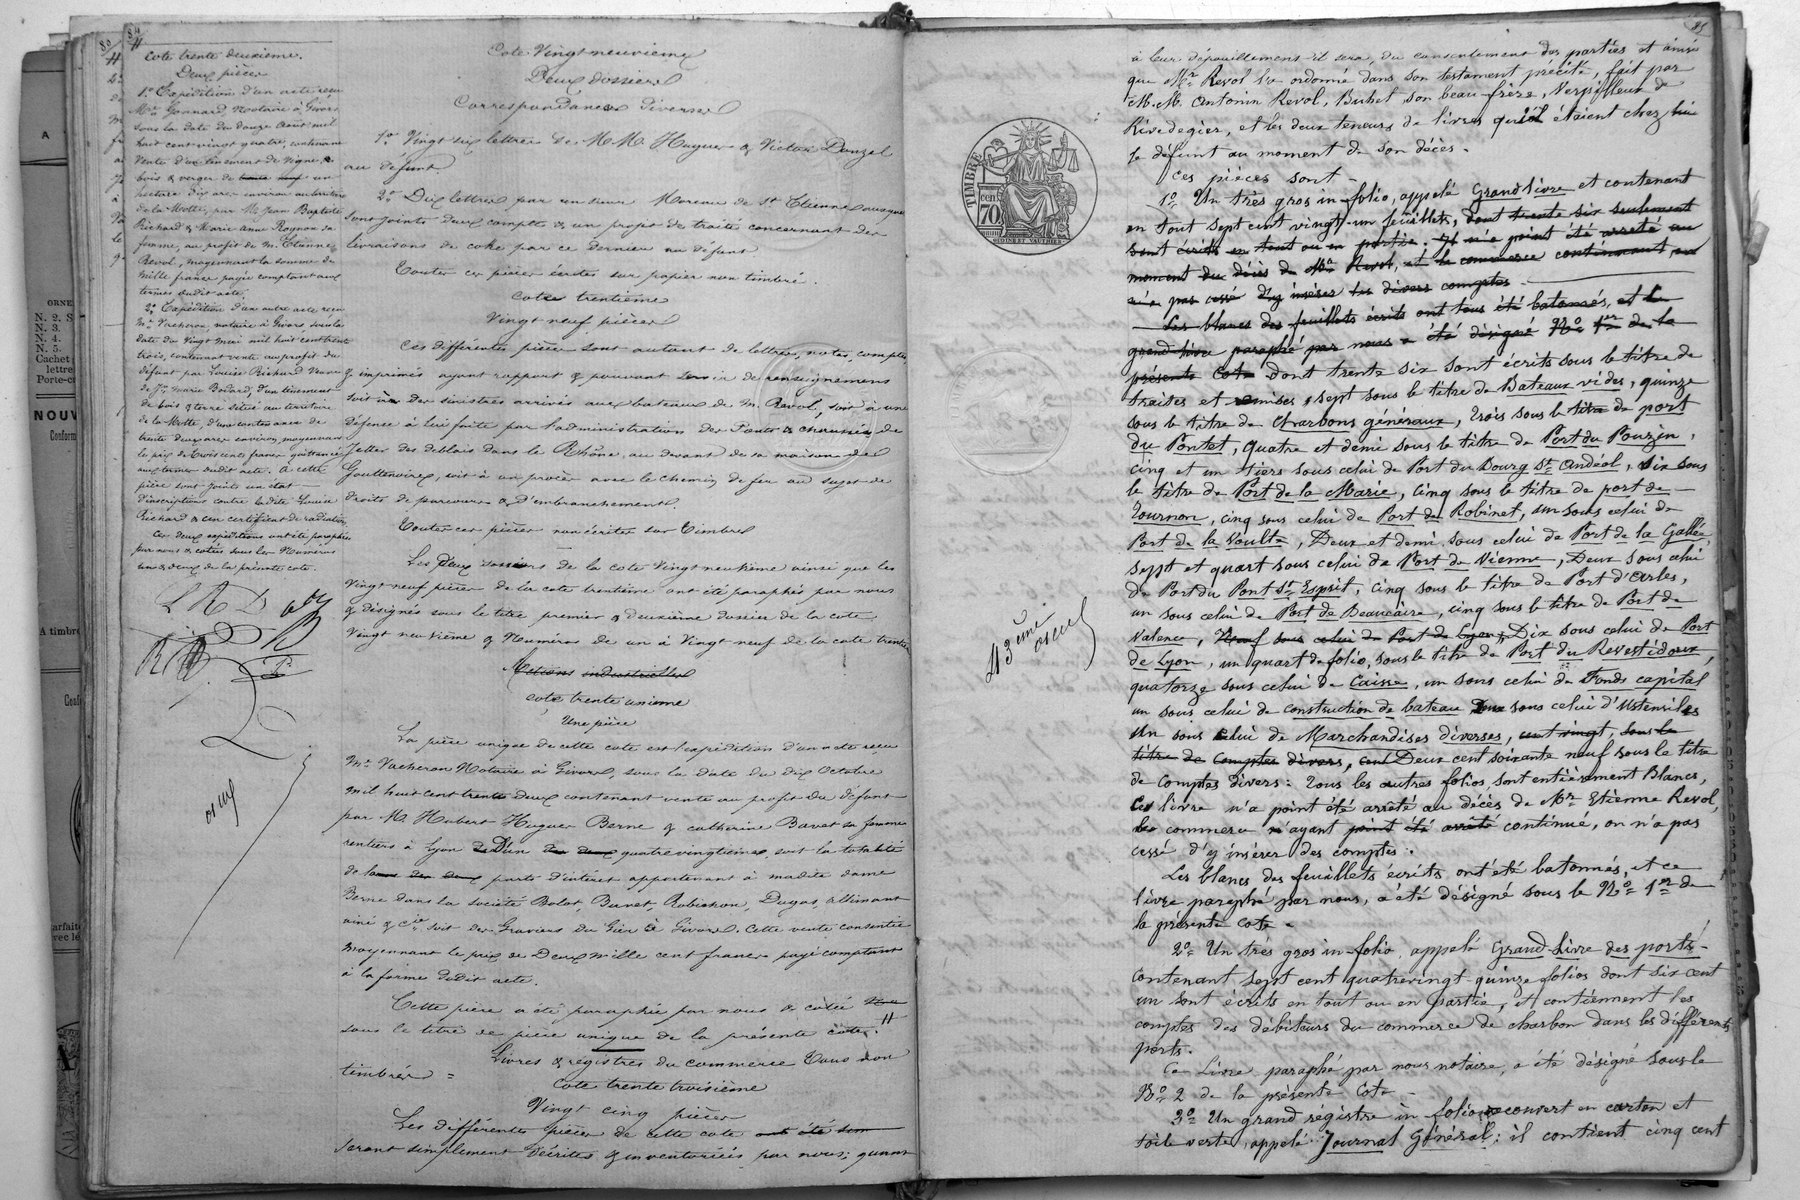 84
Cote trente deuxième.
Deux pièces
1o Expédition d'un acte reçu
Me Gonnard, Notaire à Givors
sous la date du douze Août mil
huit cent vingt quatre, contenant
Vente d'un tènement de vigne,
bois & verger de un
hectare dix ares environ au territoire
de la Motte, par M. Jean Baptiste
Richard & Marie Anne Rognon sa
femme, au profit de M. Etienne
Revol, moyennant la somme de
mille francs payée comptant aux
termes dudit acte.
2o Expédition d'un autre acte reçu
Me Vacheron, notaire à Givors, sous la
date du vingt Mai mil huit cent trente
trois, contenant vente au profit du
défunt par Louise Richard Veuve
de Marie Bodard, d'un tènement
de bois & terre situé au territoire
de la Motte, d'une contenance de
trente deux ares environ, moyennant
le prix de trois cents francs quittancé
aux termes dudit acte. à cette
pièce sont joints un état
d'inscriptions contre ladite Louise
Richard & un certificat de radiation
Ces deux expéditions ont été paraphées
par nous & cotées sous les Numéros
un & deux de la présente cote.
Cote Vingt neuvième
Deux dossiers
Correspondances diverses
1o Vingt six lettres de M.M. Hugues & Victor Donzel
au défunt.
2o Dix lettres par un sieur Moreau de St Etienne auxquelles
sont joints deux comptes & un projet de traité concernant des
livraisons de coke par ce dernier au défunt
Toutes ces pièces écrites sur papier non timbré.
Cote trentième
Vingt neuf pièces
Ces différentes pièces sont autant de lettres, notes, comptes
& imprimés ayant rapport & pouvant servir de renseignemens
soit à des sinistres arrivés aux bateaux de M. Revol, soit à une
défense à lui faite par l'administration des Ponts & chaussées de
jetter des déblais dans le Rhône, au devant de sa maison de
Gouttenoire, soit à un procès avec le chemin de fer au sujet de
droits de parcours & d'embranchement.
Toutes ces pièces non écrites sur Timbre
Les deux dossiers de la cote Vingt neuvième ainsi que les
Vingt neuf pièces de la cote trentième ont été paraphés par nous
& désignés sous le titre premier & deuxième dossier de la cote
Vingt neuvième & Numéros de un à Vingt neuf de la cote trentième
Actions industrielles
cote trente unième
Une pièce
La pièce unique de cette cote est l'expédition d'un acte reçu
Me Vacheron Notaire à Givors, sous la date du dix Octobre
mil huit cent trente deux contenant vente au profit du défunt
par M. Hubert Hugues Berne & Catherine Bavet sa femme
rentiers à Lyon D'un des deux quatrevingtièmes, soit la totalité
de parts d'intérêt appartenant à madite dame
Berne dans la société Bolot, Bavet, Robichon, Dugas, Allimant
ainé & Cie soit des Graviers du Gier à Givors. Cette vente consentie
moyennant le prix de Deux Mille cent francs payé comptant
à la forme dudit acte.
Cette pièce a été paraphée par nous & cotée
sous le titre de pièce unique de la présente cote. #
Livres & registres du commerce Tous non
timbrés =
Cote trente troisième
Vingt cinq pièces
Les différentes pièces de cette cote ont été
seront simplement décrites & inventoriées par nous; quant
85
à leur dépouillement il sera, du consentement des parties et ainsi
que Mr Revol l'a ordonné dans son testament précité, fait par
M.M. Antonin Revol, Buhet son beau-frère, Verpilleux de
Rivedegier, et les deux teneurs de livres qui étaient chez lui
le défunt au moment de son décès.
Ces pièces sont
TIMBRE
70 cen
1o Un très gros in-folio, appelé Grand livre et contenant
en tout sept cent vingt-un feuillets, dont trente six seulement
sont écrits en tout ou en partie. Il n'a point été arrêté au
moment du décès de Mr Revol, et le commerce continuant on
n'a pas cessé d'y insérer les divers comptes
Les blancs des feuillets écrits ont tous été batonnés, et le
grand livre paraphé par nous a été désigné No 1er de la
présente Cote dont trente six sont écrits sous le titre de
traites et remises, sept sous le titre de Bateaux vides, quinze
sous le titre de Charbons généraux, trois sous le titre de port
du Pontet, quatre et demi sous le titre de Port du Pouzin,
cinq et un tiers sous celui de Port du Bourg St Andéol, six sous
le titre de Port de la Marie, cinq sous le titre de port de
Tournon, cinq sous celui de Port de Robinet, un sous celui de
Port de la Voulte, Deux et demi sous celui de Port de la Gallée,
sept et quart sous celui de Port de Vienne, Deux sous celui
de Port du Pont St Esprit, cinq sous le titre de Port d'Arles,
un sous celui de Port de Beaucaire, cinq sous le titre de Port de
Valence, Neuf sous celui de Port de Lyon, Dix sous celui de Port
de Lyon, un quart de folio, sous le titre de Port du Revestidoux,
quatorze sous celui de Caisse, un sous celui de Fonds capital
un sous celui de construction de bateau sous celui d'Ustensiles
un sous celui de Marchandises diverses, cent vingt, sous le
titre de Comptes divers, Deux cent soixante neuf sous le titre
de comptes divers: Tous les autres folios, sont entièrement Blancs,
Ce livre n'a point été arrêté au décès de Mr Etienne Revol,
le commerce ayant point été arrêté continué, on n'a pas
cessé d'y insérer des comptes.
Les blancs des feuillets écrits ont été batonnés, et ce
livre paraphé par nous, a été désigné sous le No 1er de
la présente Cote.
43eme
2o Un très gros in-folio appelé Grand-Livre des ports
Contenant sept cent quatrevingt quinze folios dont six cent
un sont écrits en tout ou en partie, et contiennent les
comptes des débiteurs du commerce de charbon dans les différents
ports.
Ce Livre paraphé par nous notaire, a été désigné sous le
No 2 de la présente Cote
3o Un grand régistre in-folio recouvert en carton et
toile verte, appelé Journal Général; il contient cinq cent
ORNE
N. 2. S
N. 3.
N. 4.
N. 5.
Cachet
lettre
Porte-c
NOUV
Conform
A timbre